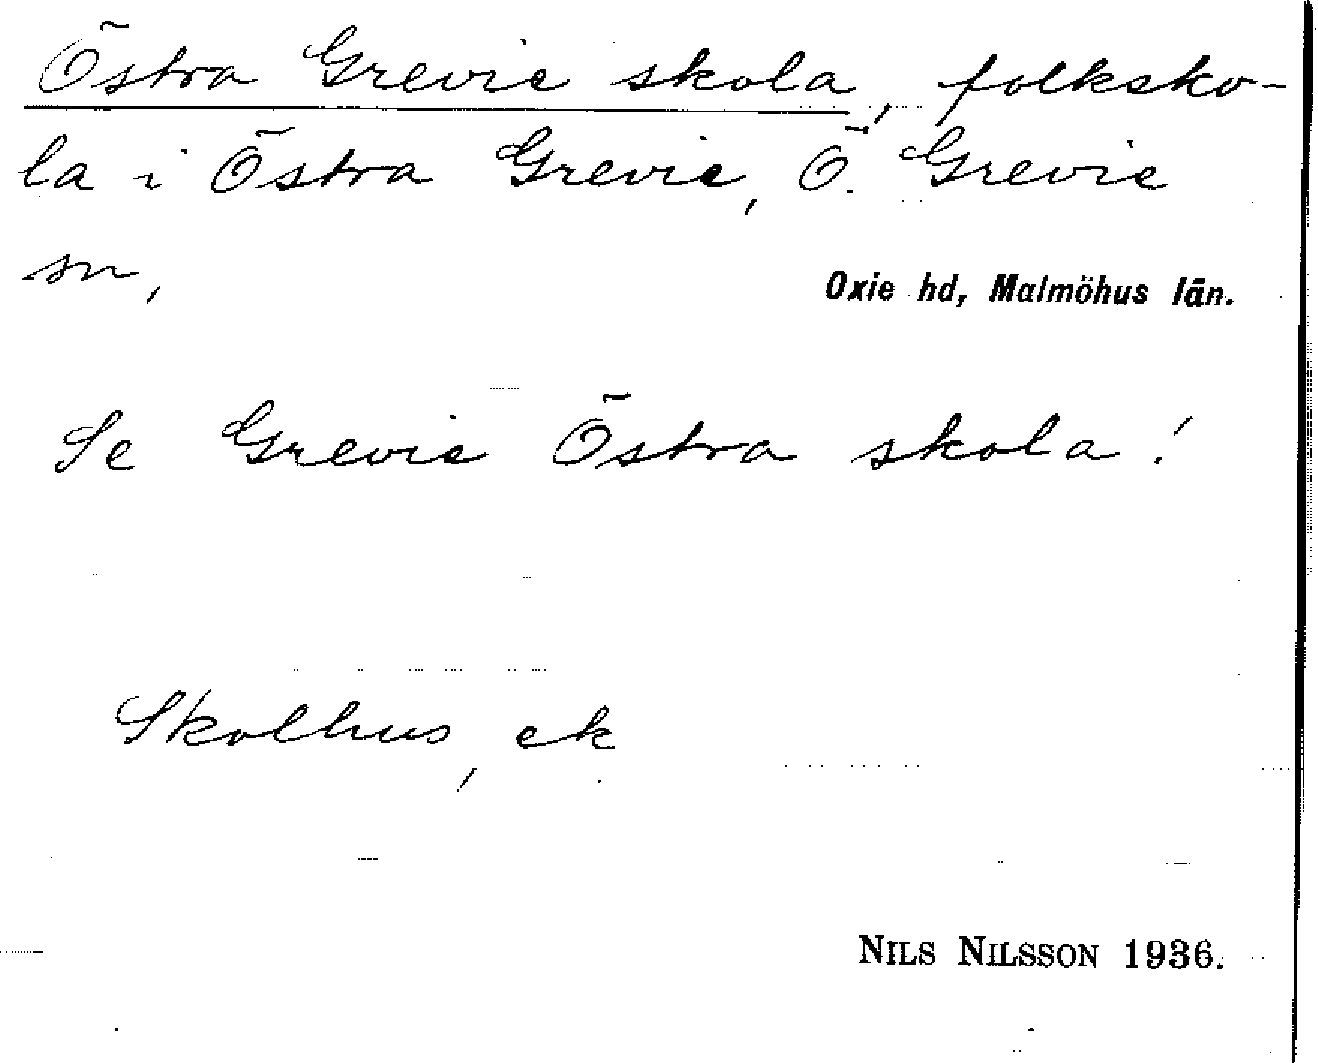 Östra Grevie skola, folksko-
la i Östra Grevie, Ö. Grevie
sn,
Oxie hd, Malmöhus län.
Se Grevie Östra skola!
Skolhus, ek
NILS NILSSON 1936.